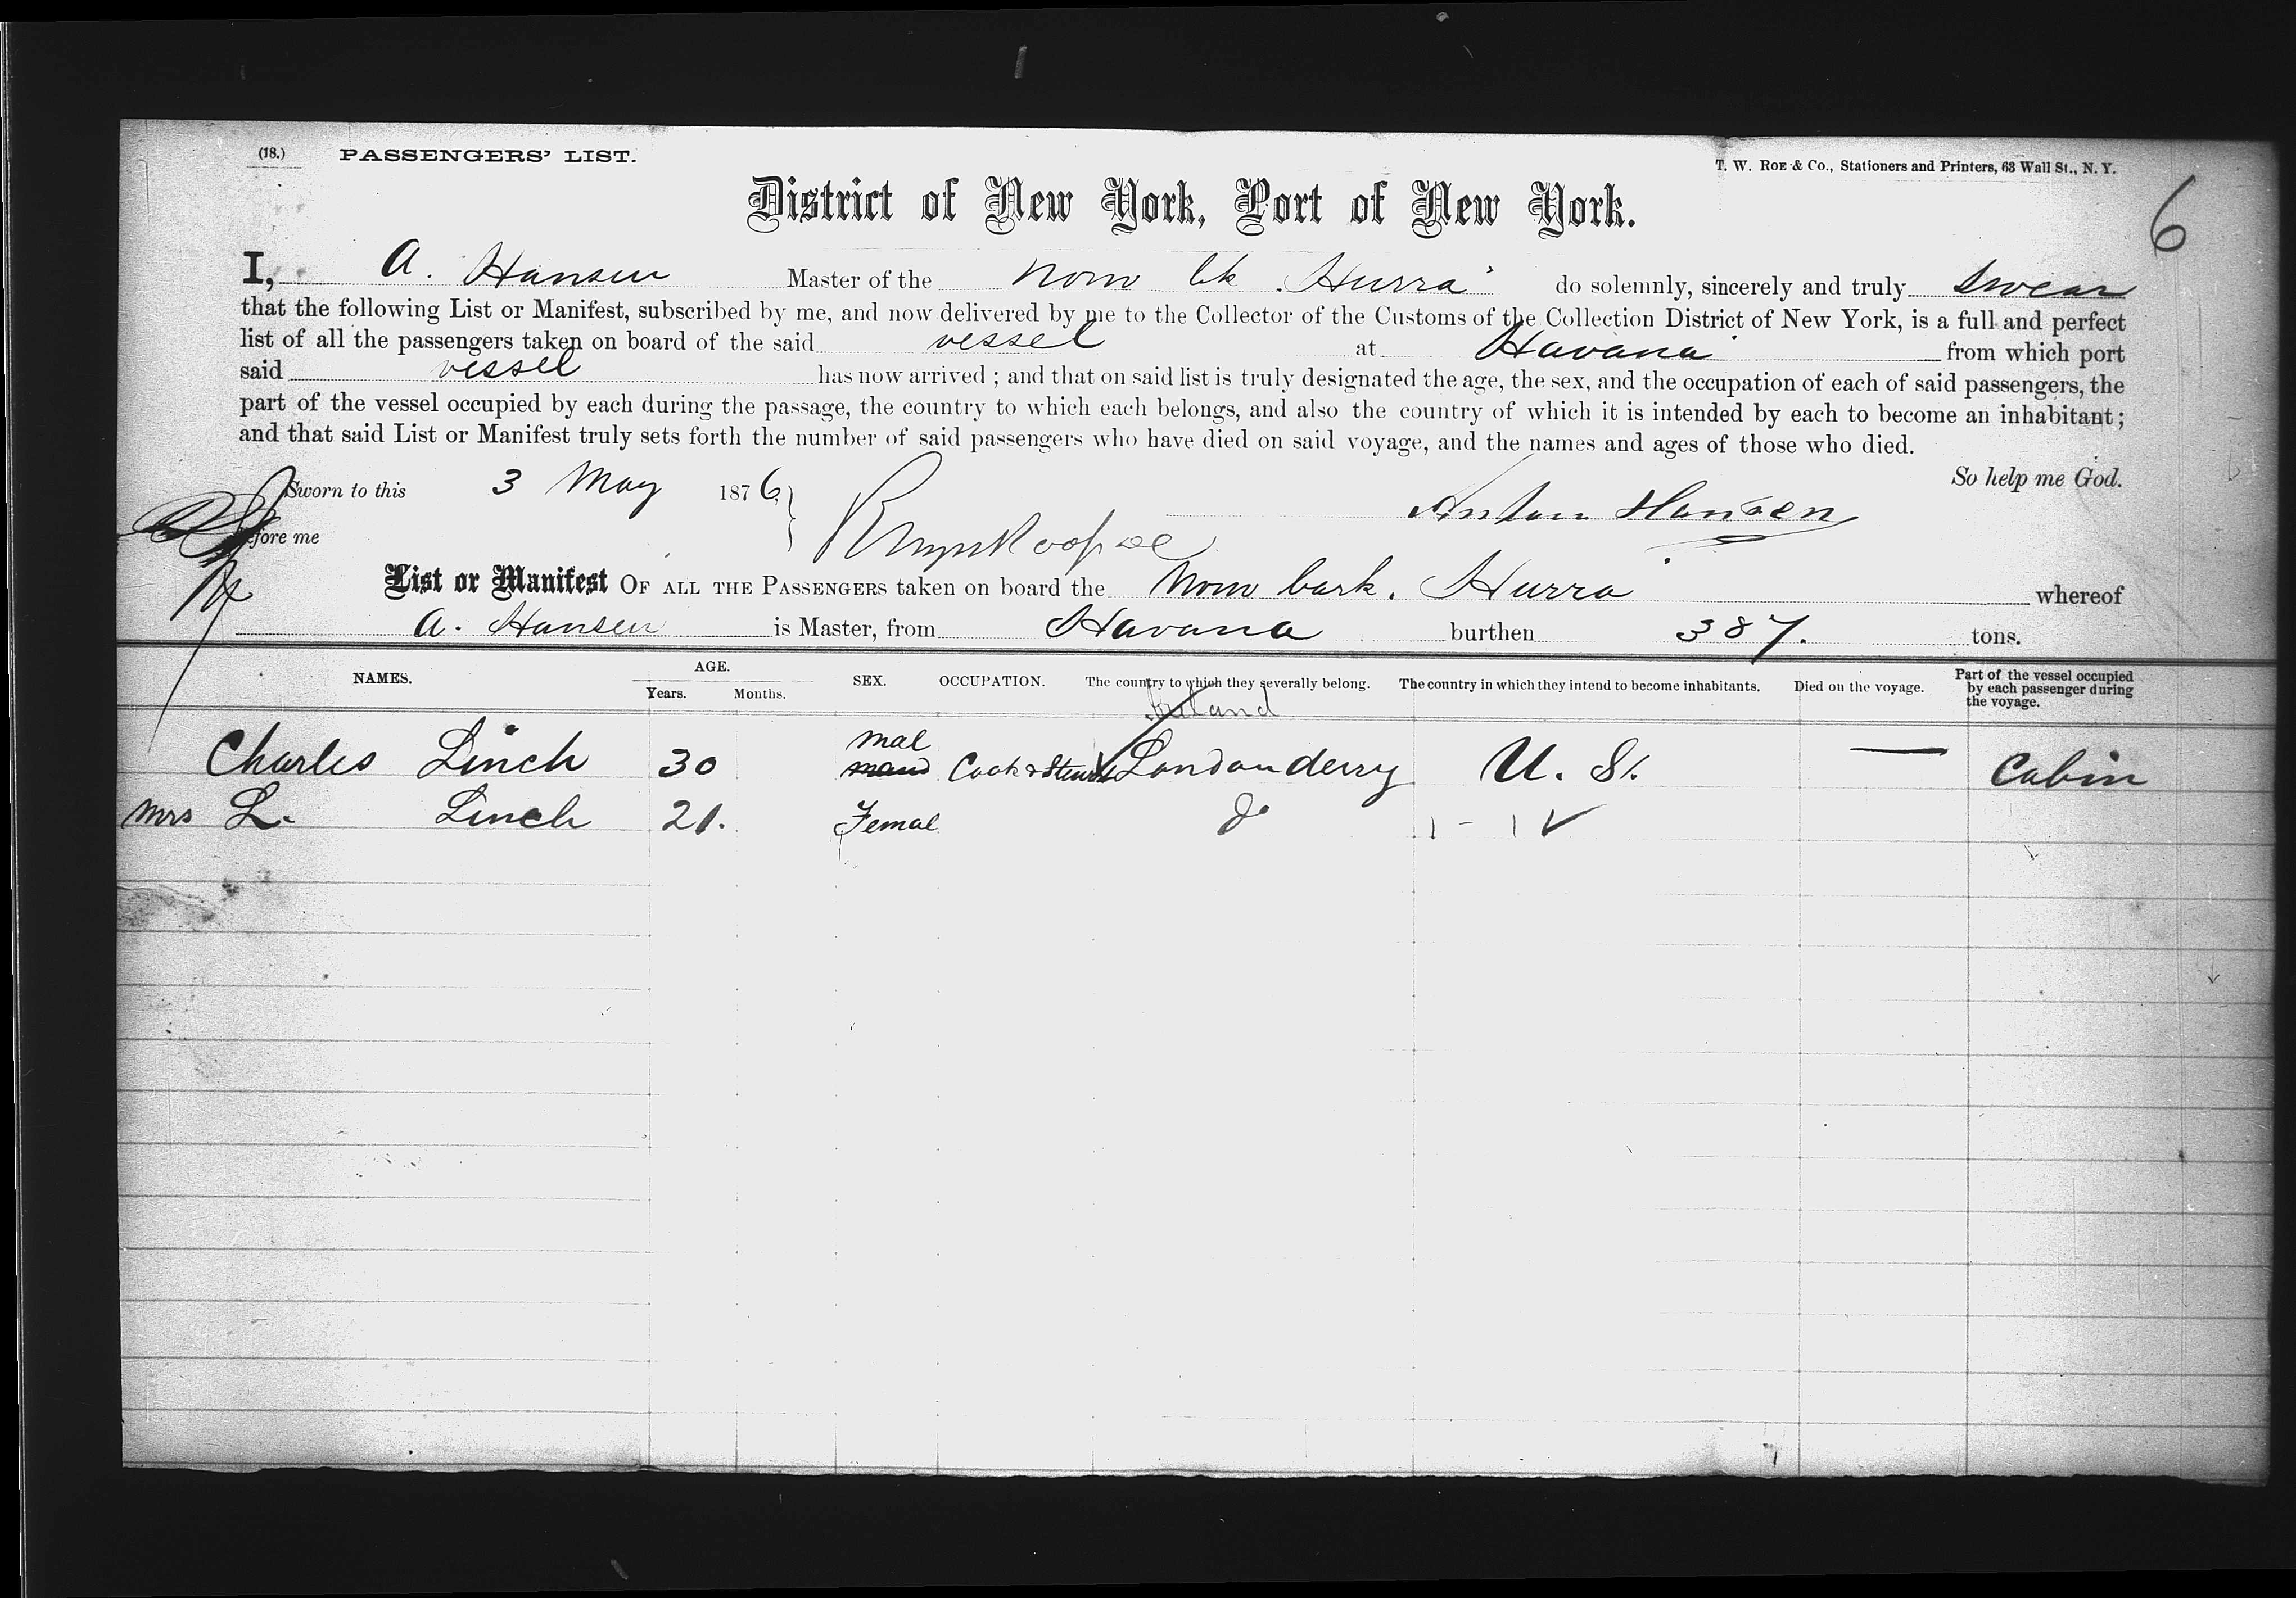 (18.) PASSENGERS' LIST. T. W. ROE & Co., Stationers and Printers, 63 Wall St., N. Y.
6
District of New York, Port of New York.
I, A. Hansen Master of the Norw bk "Hurra" do solemnly, sincerely and truly swear
that the following List or Manifest, subscribed by me, and now delivered by me to the Collector of the Customs of the Collection District of New York, is a full and perfect
list of all the passengers taken on board of the said vessel at Havana from which port
said vessel has now arrived ; and that on said list is truly designated the age, the sex, and the occupation of each of said passengers, the
part of the vessel occupied by each during the passage, the country to which each belongs, and also the country of which it is intended by each to become an inhabitant ;
and that said List or Manifest truly sets forth the number of said passengers who have died on said voyage, and the names and ages of those who died.
Sworn to this 3 May 1876 So help me God.
Anton Hansen
before me
List or Manifest OF ALL THE PASSENGERS taken on board the Norw bark. Hurra whereof
A. Hansen is Master, from Havana burthen 387. tons.
NAMES. AGE. Years. Months. SEX. OCCUPATION. The country to which they severally belong. The country in which they intend to become inhabitants. Died on the voyage. Part of the vessel occupied by each passenger during the voyage.
Ireland
Charles Linch 30 Mal Cook & Steward Londonderry U. St. — Cabin
Mrs L. Linch 21. Femal do 1 - 1 ✓